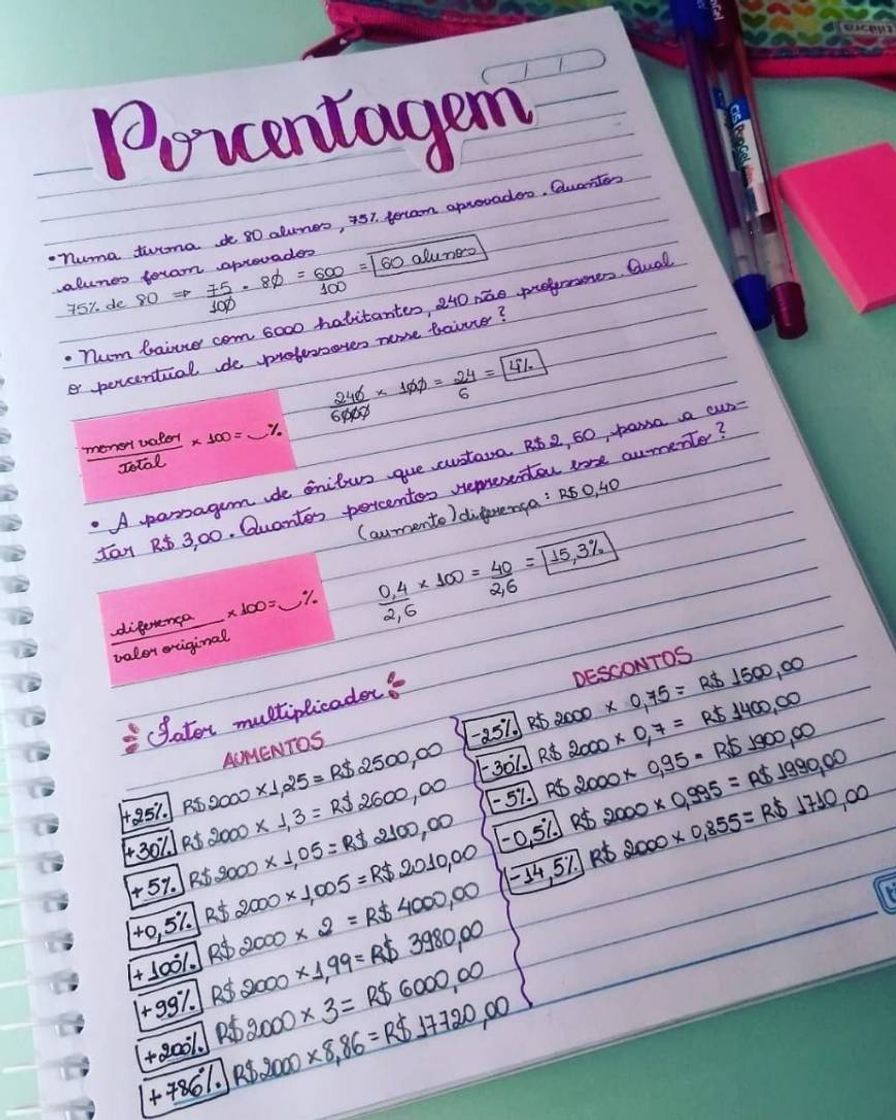 Porcentagem
• Numa turma de 80 alunos, 75% foram aprovados. Quantos
alunos foram aprovados
75% de 80 ⇒ 75/100 • 80 = 600/100 = 60 alunos
• Num bairro com 6000 habitantes, 240 são professores. Qual
o percentual de professores nesse bairro?
240/6000 x 100 = 24/6 = 4%
menor valor/total x 100 = %
• A passagem de ônibus que custava R$ 2,60, passa a cus-
tar R$ 3,00. Quantos porcentos representou esse aumento?
(aumento) diferença: R$ 0,40
0,4/2,6 x 100 = 40/2,6 = 15,3%
diferença/valor original x 100 = %
Fator multiplicador
AUMENTOS
+25% R$ 2000 x 1,25 = R$ 2500,00
+30% R$ 2000 x 1,3 = R$ 2600,00
+5% R$ 2000 x 1,05 = R$ 2100,00
+0,5% R$ 2000 x 1,005 = R$ 2010,00
+100% R$ 2000 x 2 = R$ 4000,00
+99% R$ 2000 x 1,99 = R$ 3980,00
+200% R$ 2000 x 3 = R$ 6000,00
+786% R$ 2000 x 8,86 = R$ 17720,00
DESCONTOS
-25% R$ 2000 x 0,75 = R$ 1500,00
-30% R$ 2000 x 0,7 = R$ 1400,00
-5% R$ 2000 x 0,95 = R$ 1900,00
-0,5% R$ 2000 x 0,995 = R$ 1990,00
-14,5% R$ 2000 x 0,855 = R$ 1710,00
CIS